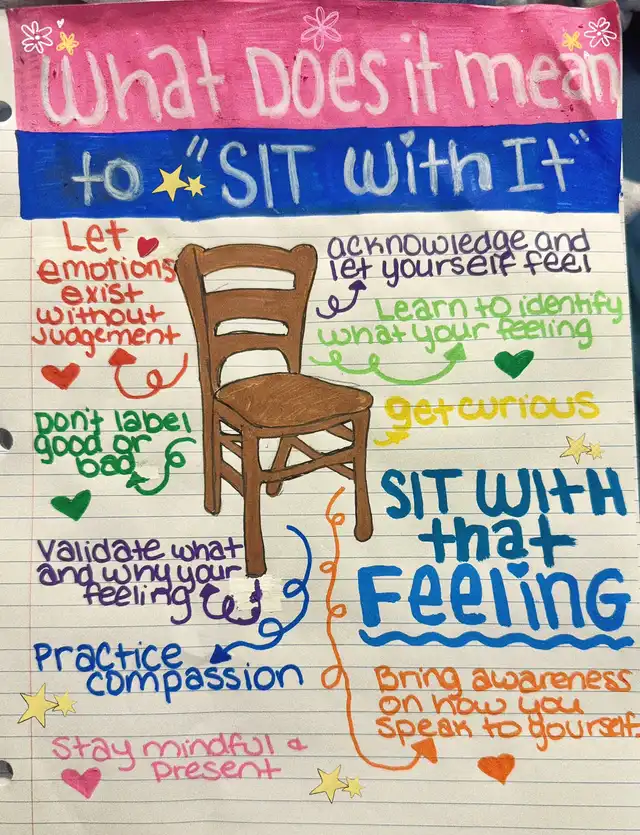 What Does it mean
to "SIT With It"
Let
emotions
exist
without
judgement
acknowledge and
let yourself feel
Learn to identify
what your feeling
Don't label
good or
bad
get curious
SIT WITH
that
Feeling
Validate what
and why your
feeling
Practice
compassion
Bring awareness
on how you
speak to yourself.
Stay mindful &
present